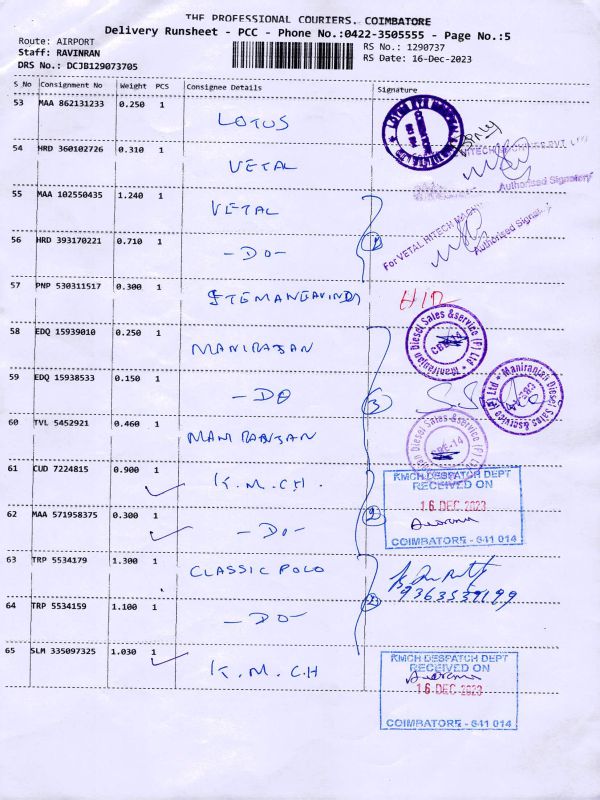 THE PROFESSIONAL COURIERS. COIMBATORE
Delivery Runsheet - PCC - Phone No.:0422-3505555 - Page No.:5
Route: AIRPORT
RS No.: 1290737
Staff: RAVINRAN
RS Date: 16-Dec-2023
DRS No.: DCJB129073705
S No Consignment No Weight PCS Consignee Details Signature
53 MAA 862131233 0.250 1 LOTUS
54 HRD 360102726 0.310 1 VETAL
Authorised Signatory
55 MAA 102550435 1.240 1 VETAL
For VETAL HITECH
Authorised Signatory
56 HRD 393170221 0.710 1 -DO-
57 PNP 530311517 0.300 1
58 EDQ 15939010 0.250 1 MANIRAJAN
Maniranjan Diesel Sales &service (P) Ltd
CBE-14
59 EDQ 15938533 0.150 1 -DO
3
Maniranjan Diesel Sales &service (P) Ltd
60 TVL 5452921 0.460 1
Diesel Sales &service (P)
CBE-14
61 CUD 7224815 0.900 1 K.M.C.H.
KMCH DESPATCH DEPT
RECEIVED ON
16 DEC 2023
COIMBATORE - 641 014
62 MAA 571958375 0.300 1 -DO-
2
63 TRP 5534179 1.300 1 CLASSIC POLO
9363539199
64 TRP 5534159 1.100 1 -DO-
2
65 SLM 335097325 1.030 1 K.M.C.H
KMCH DESPATCH DEPT
RECEIVED ON
16 DEC 2023
COIMBATORE - 641 014